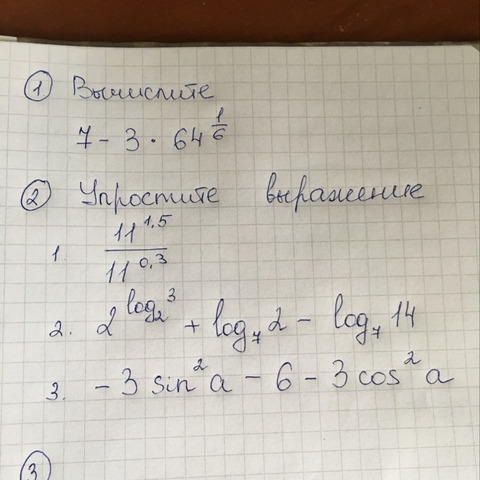 ① Вычислите
7 - 3 · 64^{1/6}
② Упростите выражение
1. 11^{1,5} / 11^{0,3}
2. 2^{log_2 3} + log_7 2 - log_7 14
3. -3 sin^2 a - 6 - 3 cos^2 a
③